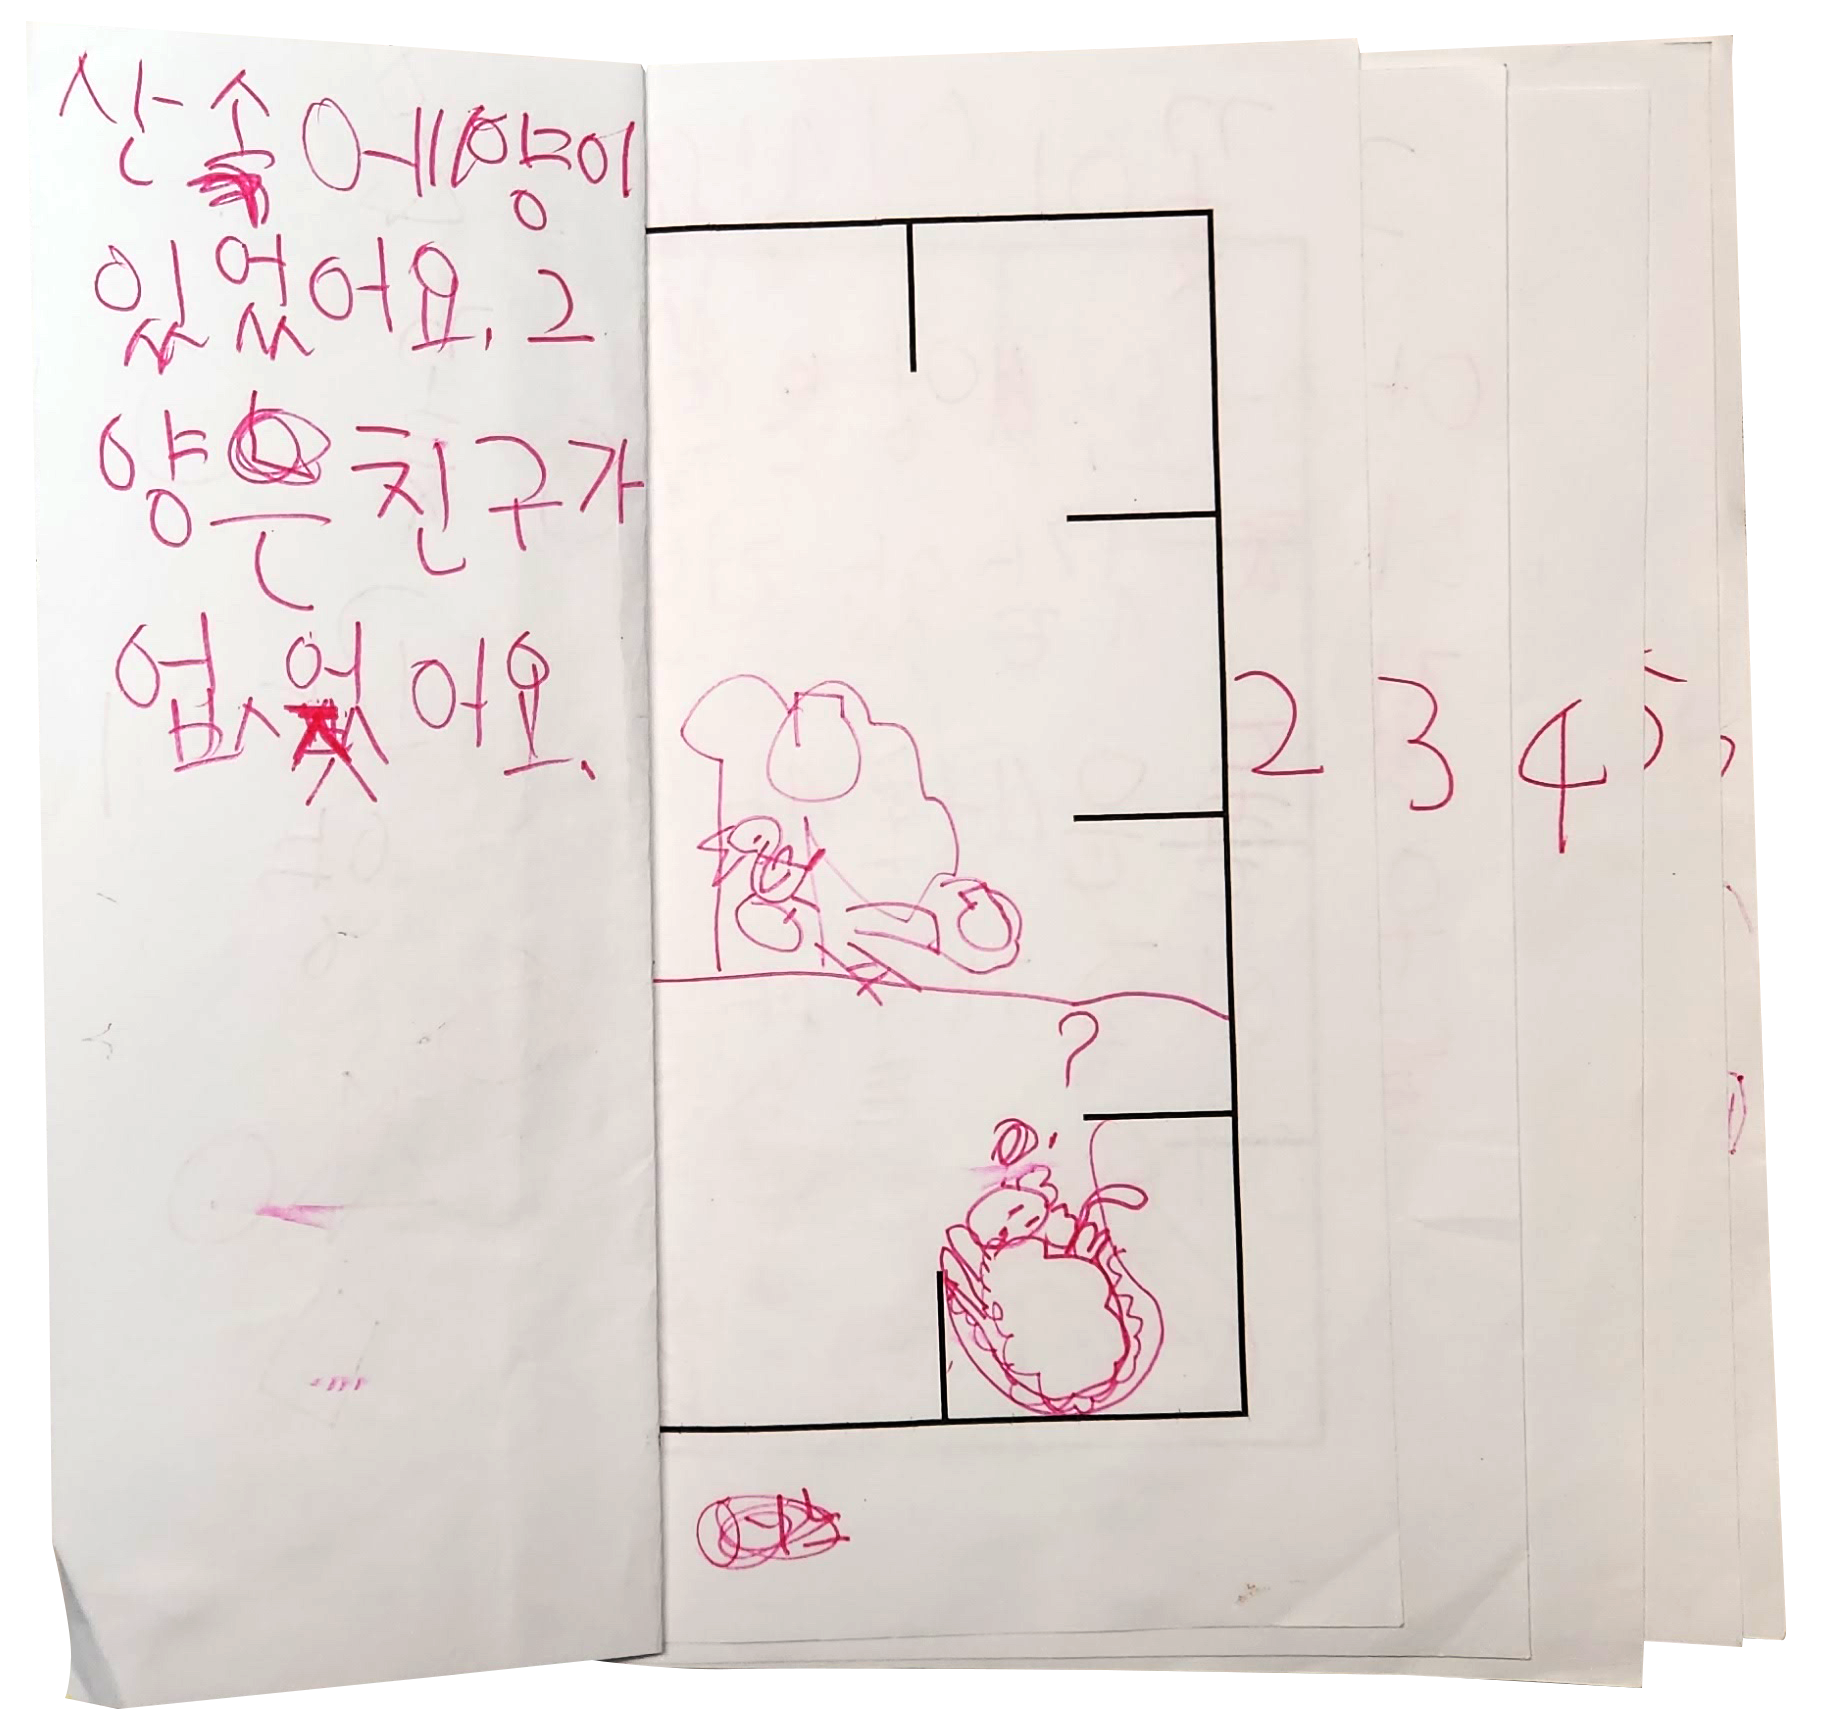 산속에양이
있었어요. 그
양은친구가
없었어요.
?
2 3 4 5